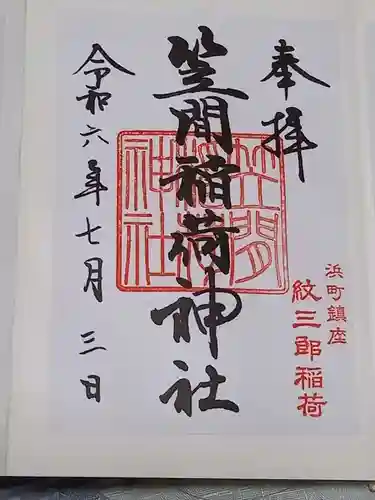 奉拝
浜町鎮座
紋三郎稲荷
笠間稲荷神社
笠間稲荷神社
令和六年七月三日